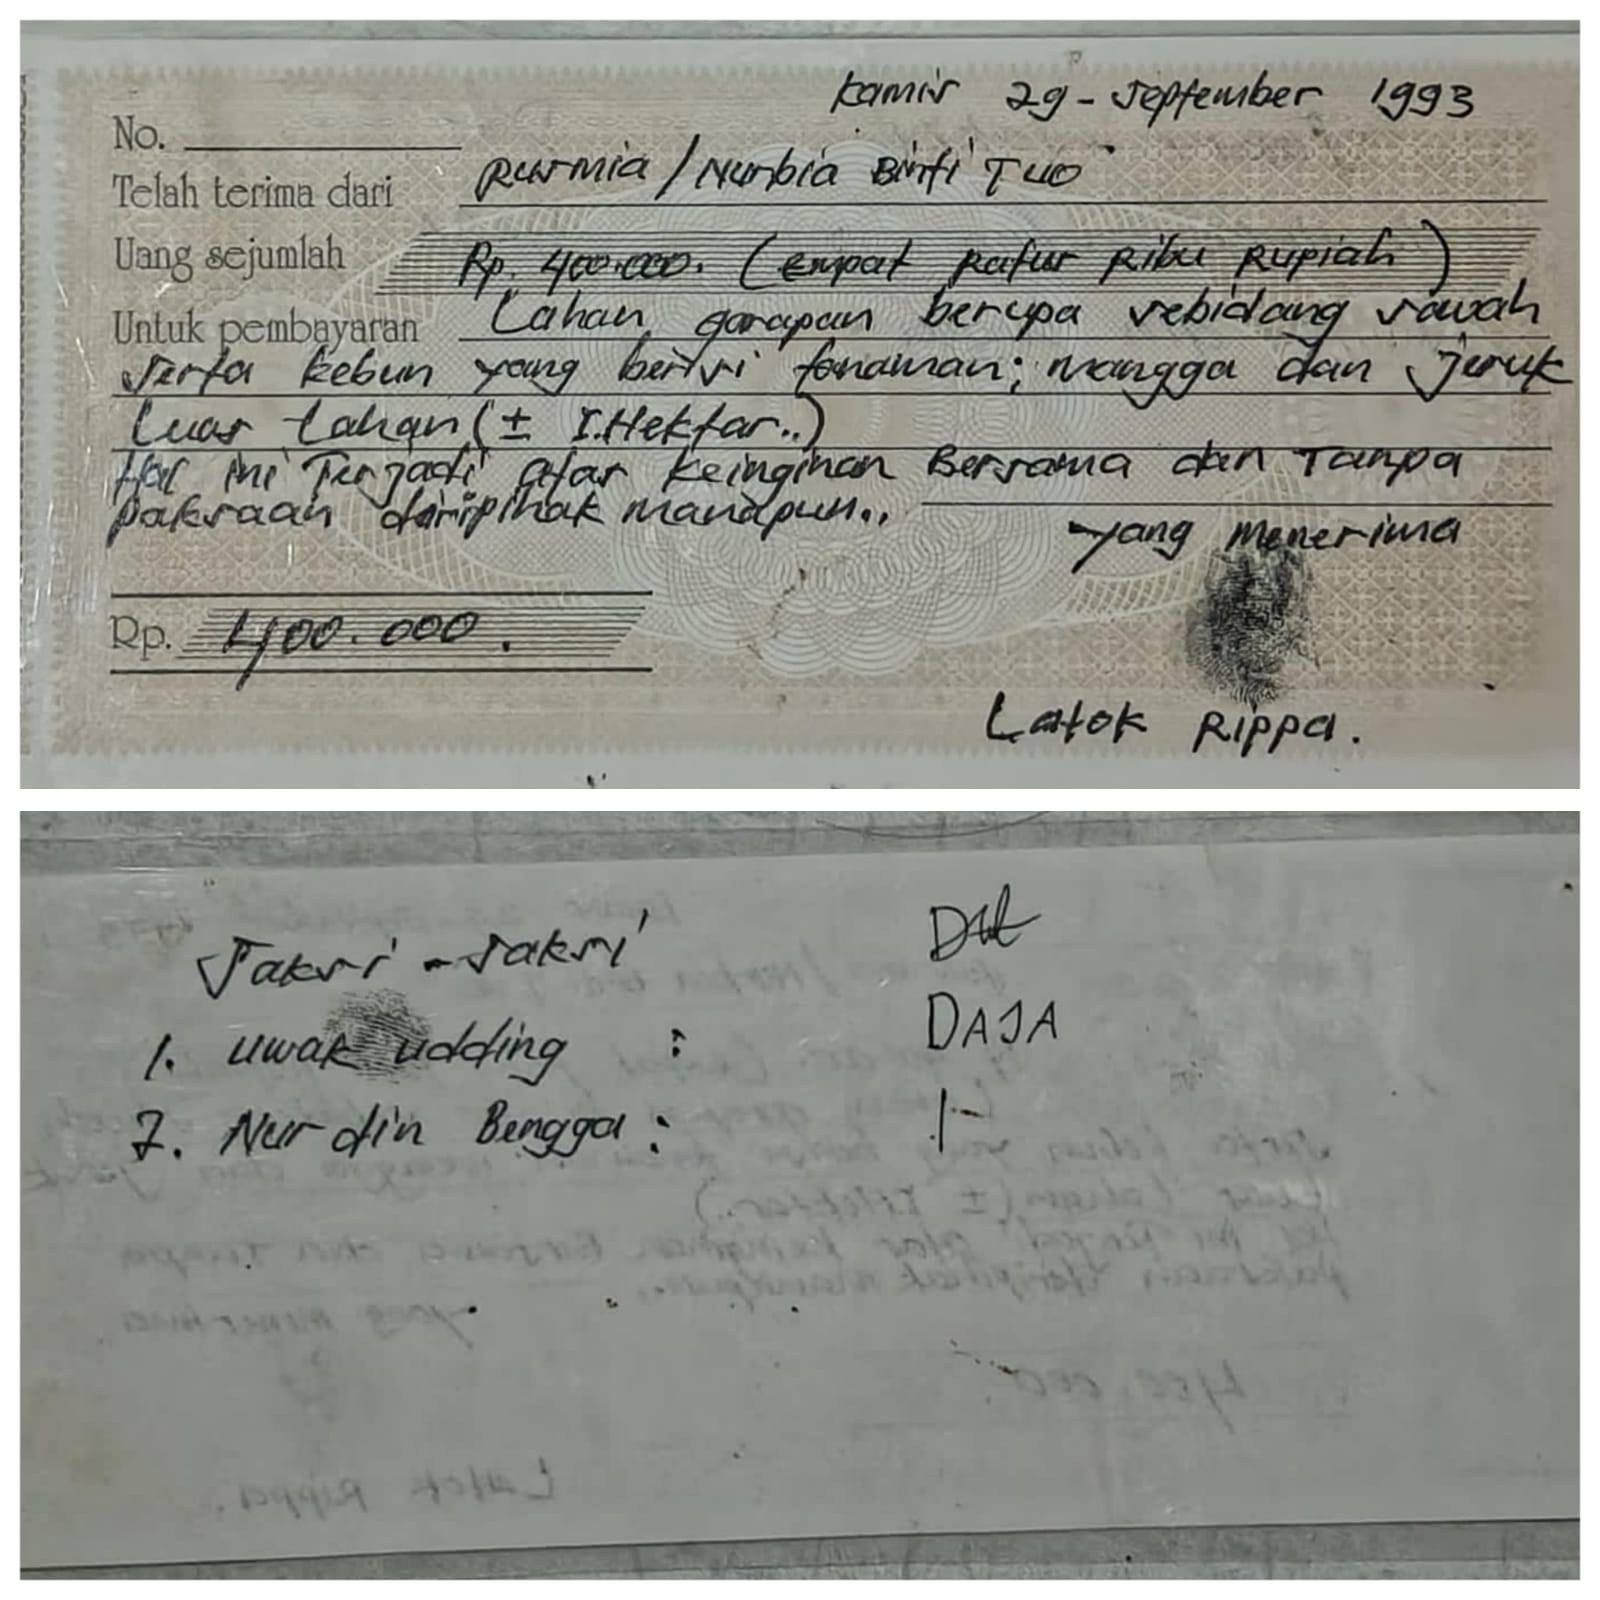 Kamis 29 - September 1993
No.
Telah terima dari Rusmia / Nurbia Binti Tuo
Uang sejumlah Rp. 400.000. (empat ratus Ribu Rupiah)
Untuk pembayaran Lahan garapan berupa sebidang sawah
serta kebun yang berisi tanaman; mangga dan jeruk
Luas Lahan (± 1.Hektar..)
Hal ini Terjadi atas keinginan Bersama dan Tanpa
paksaan daripihak manapun..
yang menerima
Rp. 400.000.
Latok Rippa.
Saksi - saksi
1. uwak udding : DAJA
2. Nurdin Bengga :